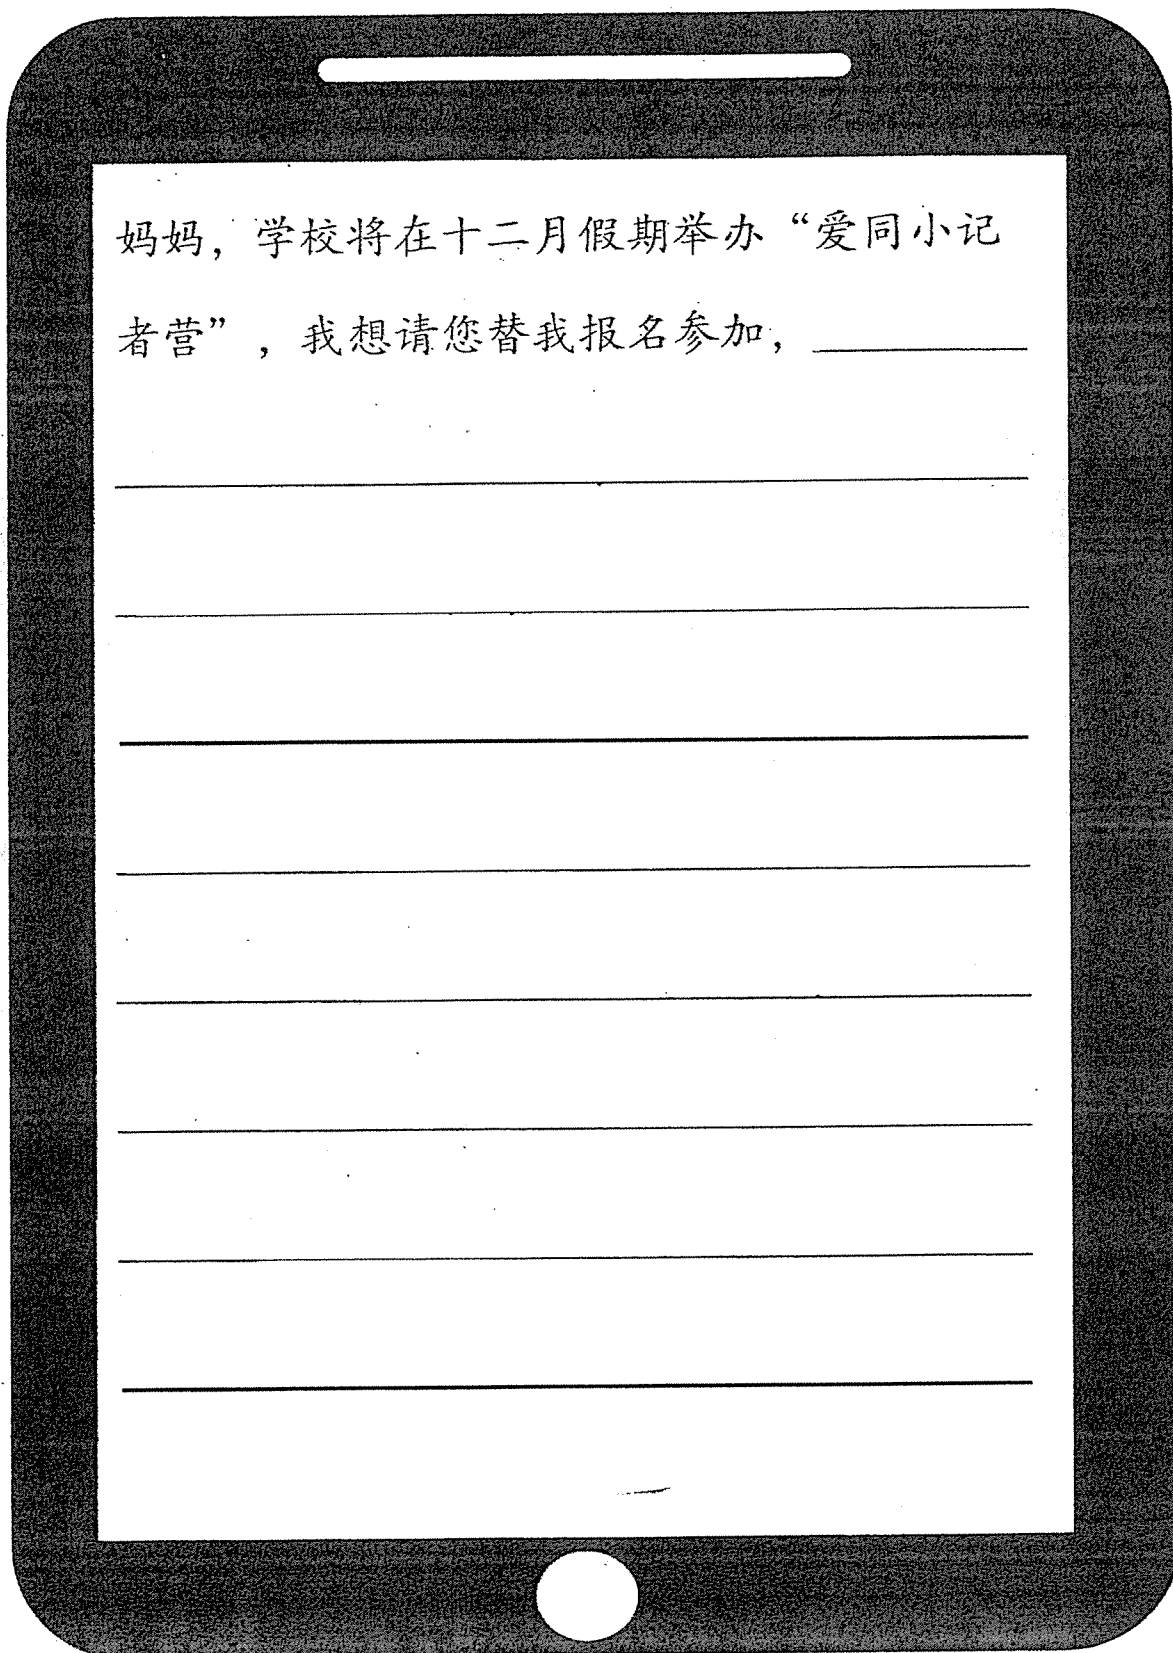 妈妈，学校将在十二月假期举办“爱同小记
者营”，我想请您替我报名参加，